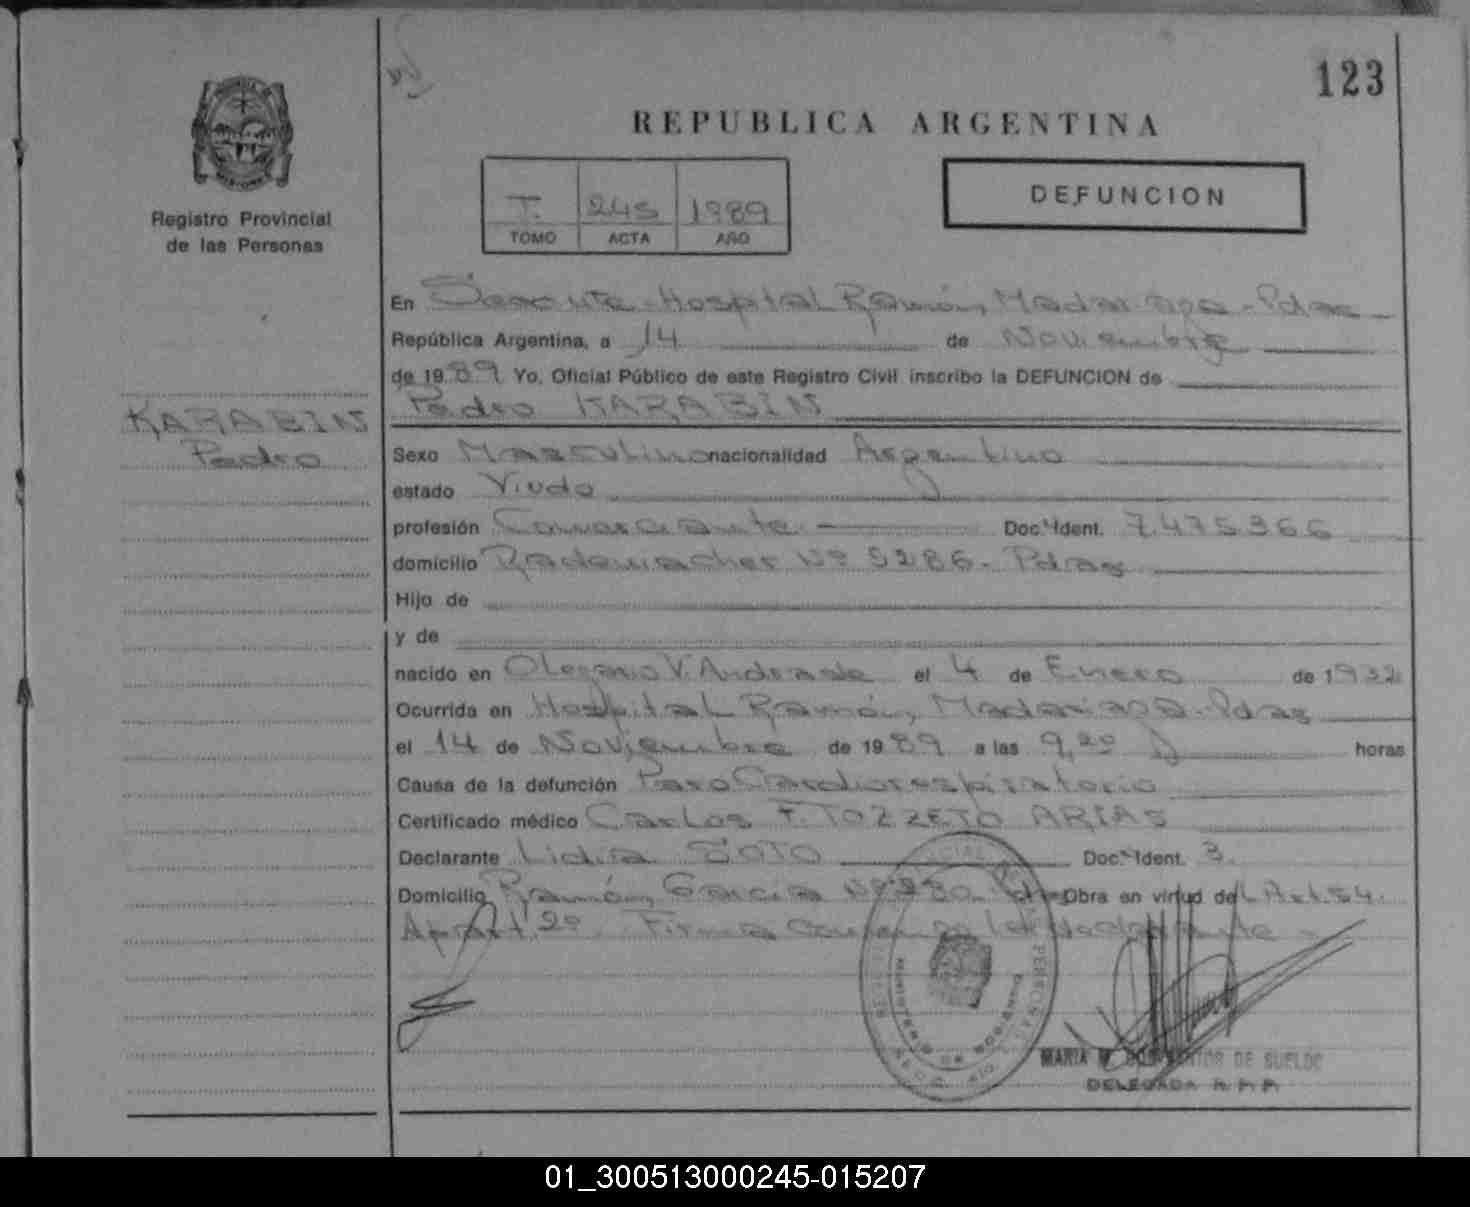 123
REPUBLICA ARGENTINA
DEFUNCION
Registro Provincial
de las Personas
T. 245 1989
TOMO ACTA AÑO
KARABIN
Pedro
En Hospital Ramón Madariaga - Pdas
República Argentina, a 14 de Noviembre
de 1989 Yo, Oficial Público de este Registro Civil inscribo la DEFUNCION de
Pedro KARABIN
Sexo Masculino nacionalidad Argentino
estado Viudo
profesión Comerciante Doc. Ident. 7.475.366
domicilio Rademacher Nº 5286 - Pdas
Hijo de
y de
nacido en Olegario V. Andrade el 4 de Enero de 1932
Ocurrida en Hospital Ramón Madariaga - Pdas
el 14 de Noviembre de 1989 a las 9,20 horas
Causa de la defunción Paro Cardiorespiratorio
Certificado médico Carlos F. TOZZETO ARIAS
Declarante Lidia SOTO Doc. Ident. 3.
Domicilio Ramón Garcia Nº 280 Obra en virtud del Art. 54.
Apart. 2º Firma declarante
MINISTERIO DE GOBIERNO
MARIA DE SUELDO
DELEGADA
01_300513000245-015207